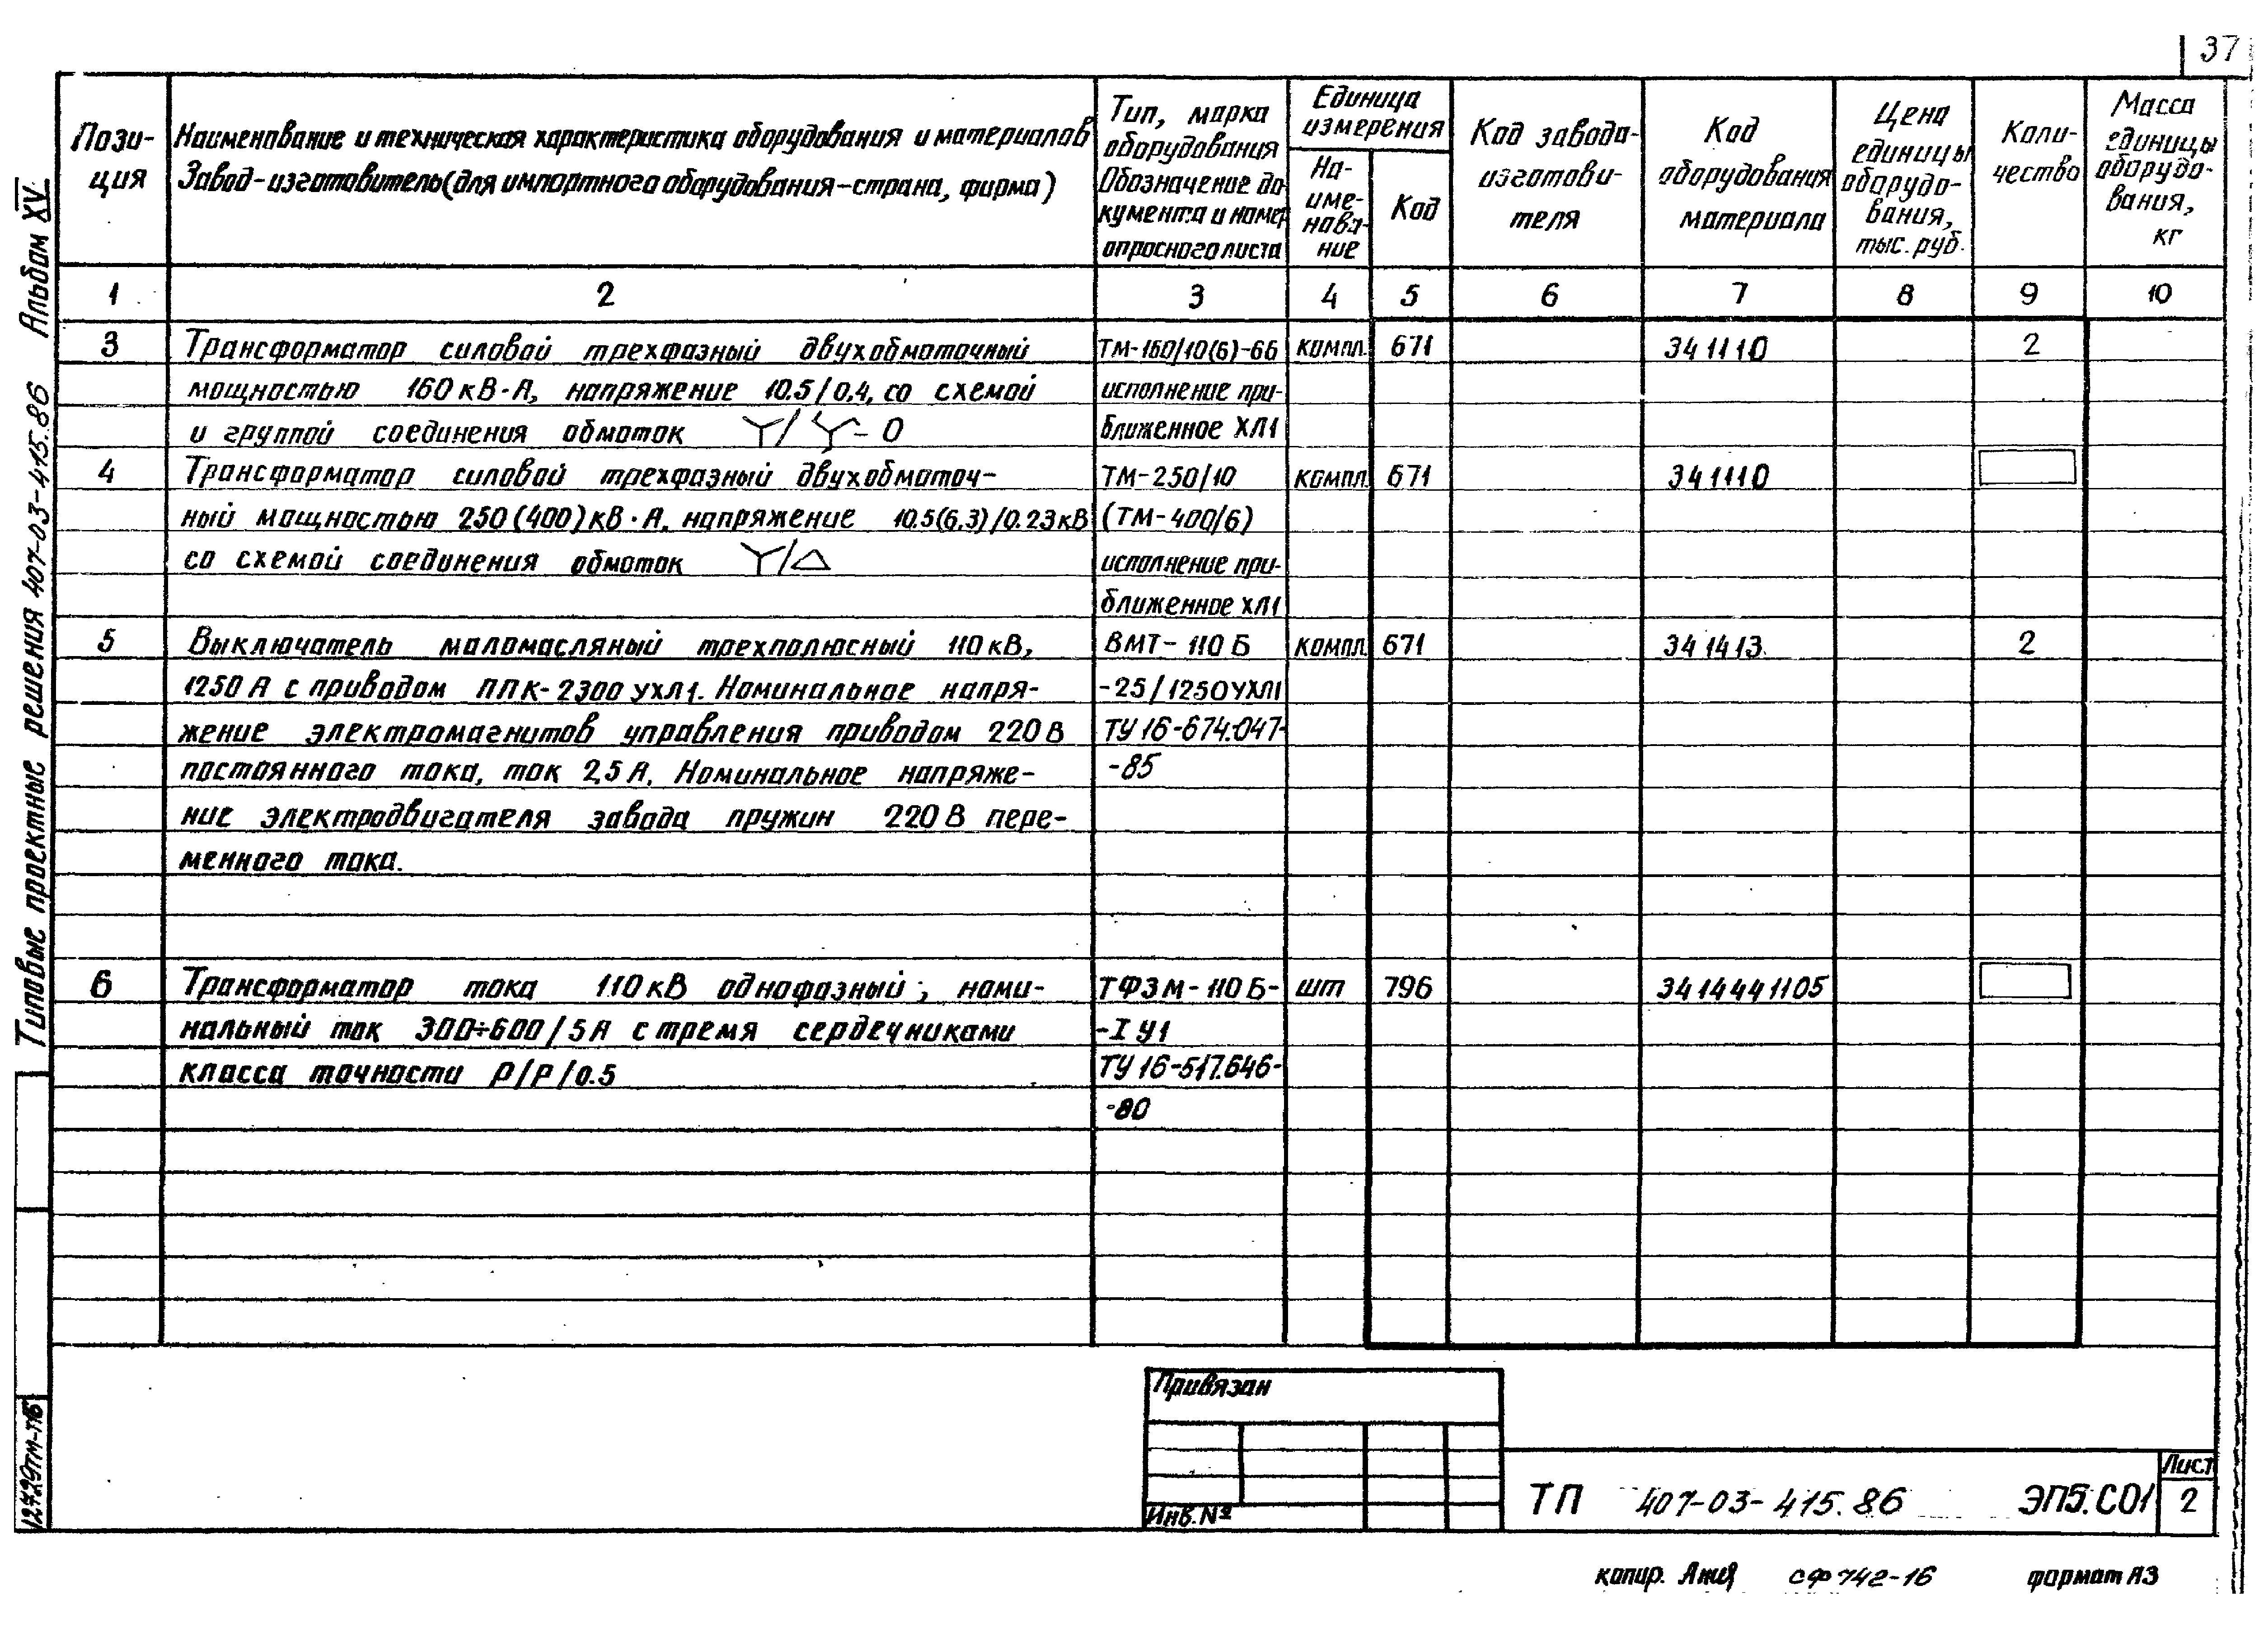 37
Пози-
ция
Наименование и техническая характеристика оборудования и материалов
Завод-изготовитель (для импортного оборудования-страна, фирма)
Тип, марка
оборудования
Обозначение до
кумента и номер
опросного листа
Единица
измерения
На-
име-
нова-
ние
Код
Код завода-
изготови-
теля
Код
оборудования
материала
Цена
единицы
оборудо-
вания,
тыс. руб.
Коли-
чество
Масса
единицы
оборудо-
вания,
кг
1 2 3 4 5 6 7 8 9 10
3 Трансформатор силовой трехфазный двухобмоточный ТМ-160/10(6)-66 компл. 671 341110 2
мощностью 160 кВ·А, напряжение 10.5/0,4, со схемой исполнение при-
и группой соединения обмоток Y/Y-0 ближенное ХЛ1
4 Трансформатор силовой трехфазный двухобмоточ- ТМ-250/10 компл. 671 341110
ный мощностью 250(400)кВ·А, напряжение 10.5(6.3)/0.23кВ (ТМ-400/6)
со схемой соединения обмоток Y/△ исполнение при-
ближенное ХЛ1
5 Выключатель маломасляный трехполюсный 110 кВ, ВМТ-110Б компл. 671 341413 2
1250А с приводом ППК-2300 УХЛ1. Номинальное напря- -25/1250УХЛ1
жение электромагнитов управления приводом 220 В ТУ 16-674.047-
постоянного тока, ток 2,5 А. Номинальное напряже- -85
ние электродвигателя завода пружин 220 В пере-
менного тока.
6 Трансформатор тока 110 кВ однофазный, номи- ТФЗМ-110Б- шт 796 3414441105
нальный ток 300÷600/5А с тремя сердечниками -I У1
класса точности Р/Р/0.5 ТУ 16-517.646-
-80
Типовые проектные решения 407-03-415.86 Альбом XV
12729тм-т15
Привязан
Инв.№
ТП 407-03-415.86 ЭП5.С01
Лист
2
копир. СФ 742-16 формат А3